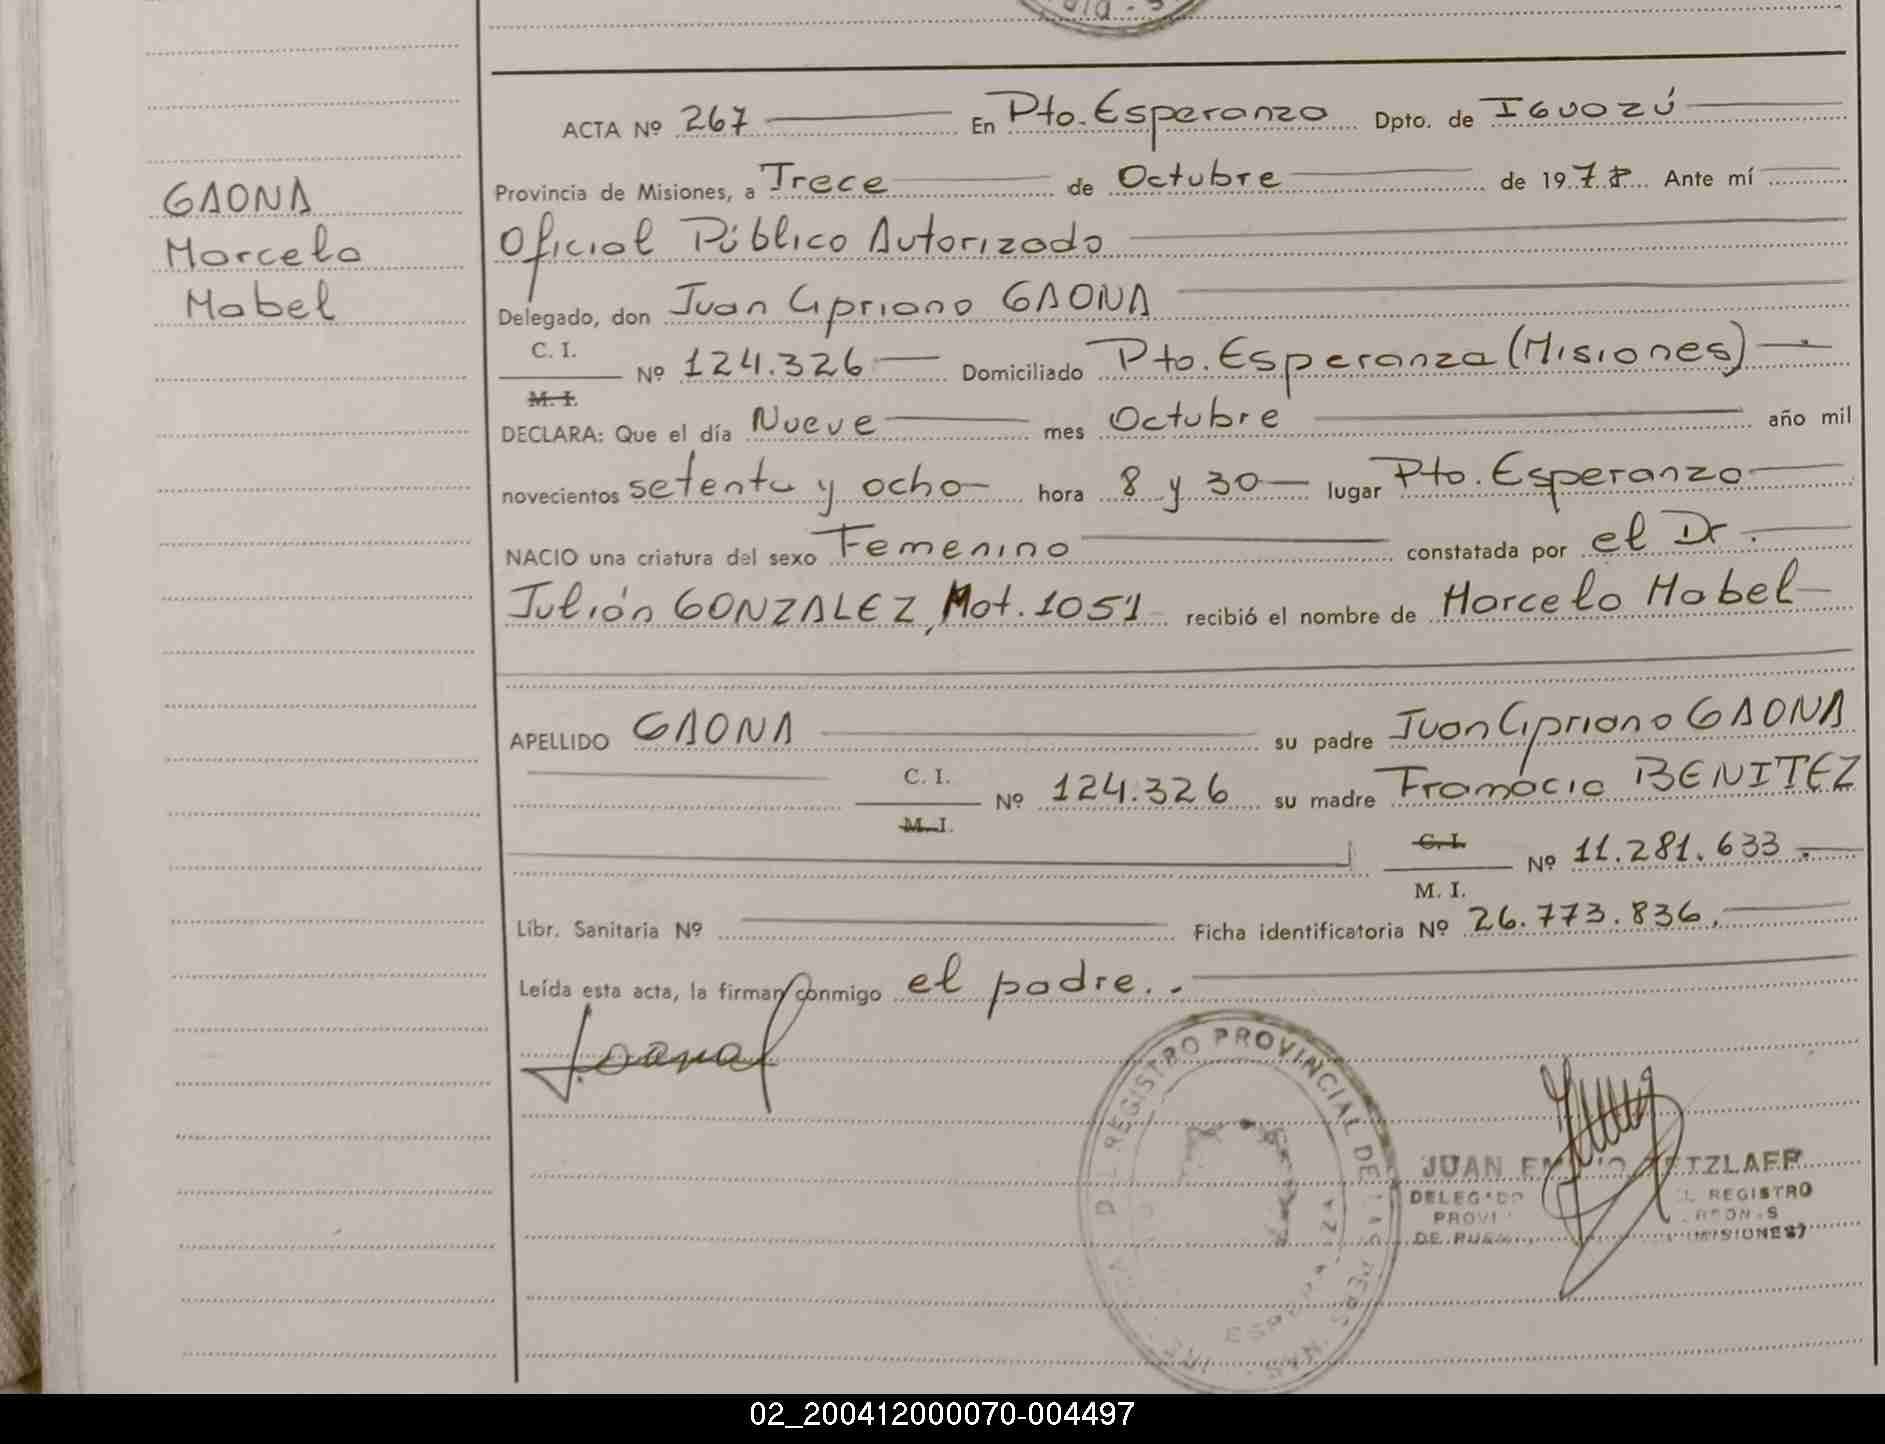 ACTA Nº 267 En Pto. Esperanza Dpto. de IGUAZÚ
Provincia de Misiones, a Trece de Octubre de 1978 Ante mí
Oficial Público Autorizado
Delegado, don Juan Cipriano GAONA
C. I.
M. I.
Nº 124.326 Domiciliado Pto. Esperanza (Misiones)
DECLARA: Que el día Nueve mes Octubre año mil
novecientos setenta y ocho hora 8 y 30 lugar Pto. Esperanza
NACIO una criatura del sexo Femenino constatada por el Dr.
Julián GONZALEZ, Mat. 1051 recibió el nombre de Marcela Mabel
APELLIDO GAONA su padre Juan Cipriano GAONA
C. I.
M. I.
Nº 124.326 su madre BENITEZ
C. I.
M. I.
Nº 11.281.633.
Libr. Sanitaria Nº Ficha identificatoria Nº 26.773.836.
Leída esta acta, la firman conmigo el padre..
GAONA
Marcela
Mabel
REGISTRO PROVINCIAL DE LAS PERSONAS
JUAN
DELEGADO REGISTRO
(MISIONES)
02_200412000070-004497